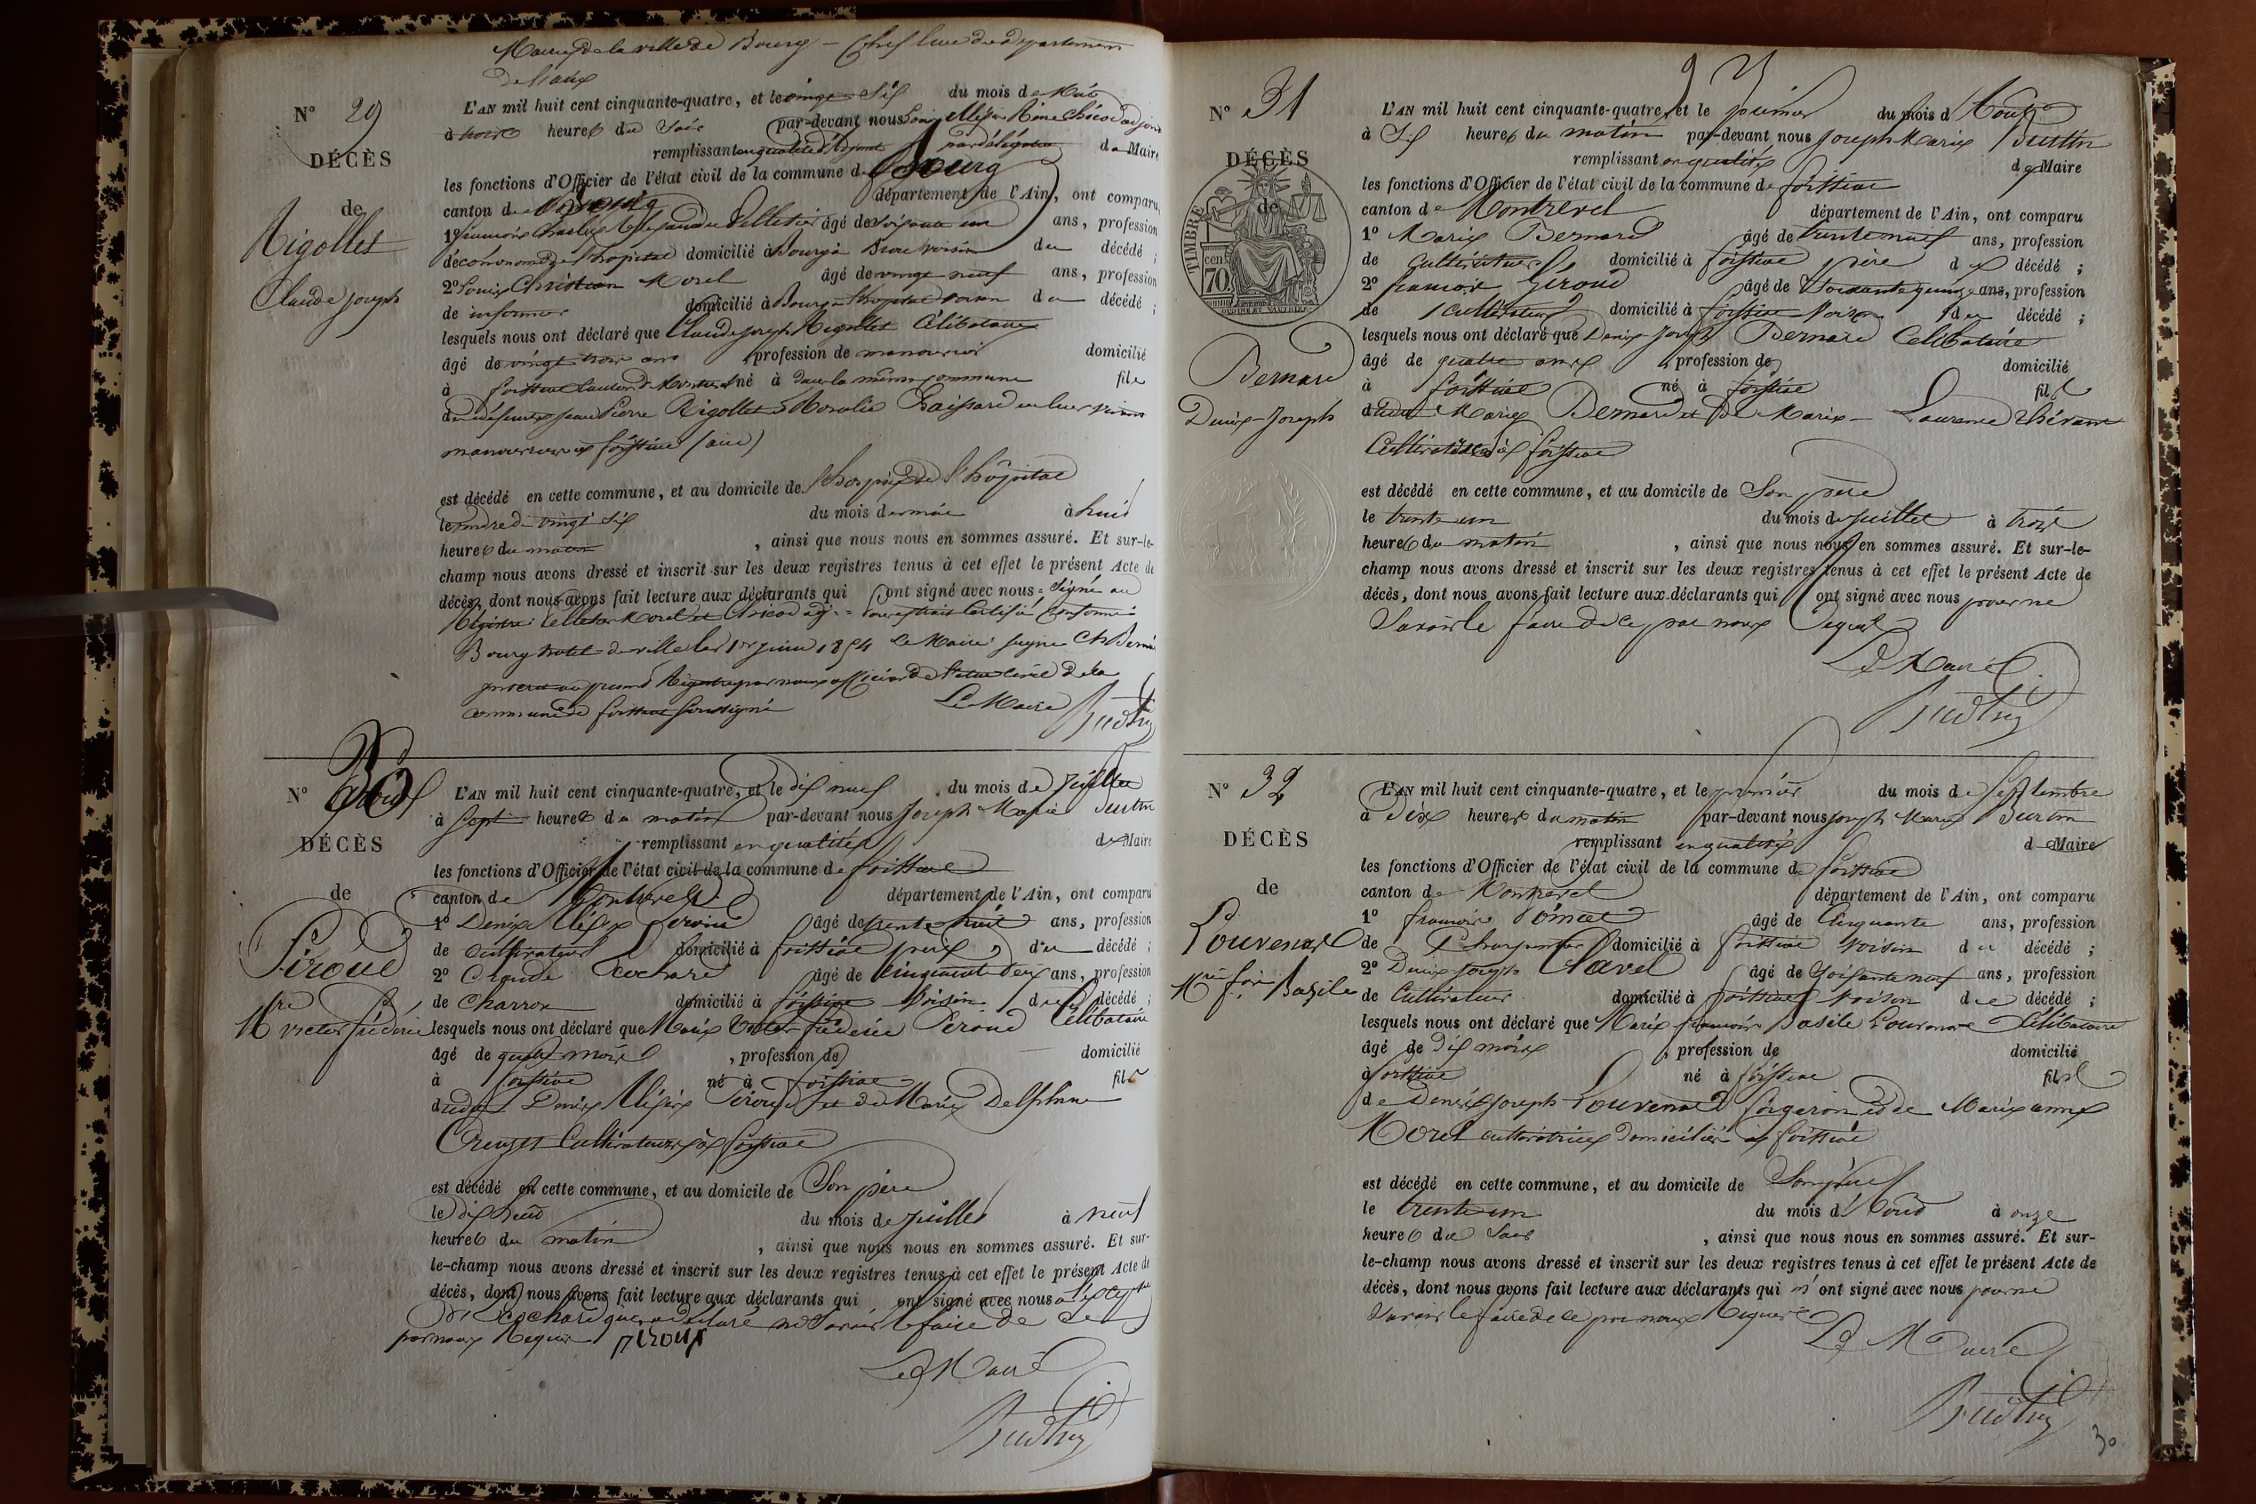 Mairie de la ville de Bourg – Chef lieu du département
de l'ain
N° 29
DÉCÈS
de
Rigollet
Claude Joseph
L'AN mil huit cent cinquante-quatre, et le vingt Six du mois de Mai
à trois heures du Soir par-devant nous adjoint
remplissant en qualité d'adjoint par délégation de Maire
les fonctions d'Officier de l'état civil de la commune de Bourg
canton de Bourg département de l'Ain, ont comparu
1° françois Charles Alexandre Pelletier âgé de Soixante un ans, profession
d'économe de l'hopital domicilié à Bourg voisin du décédé ;
2° Louis Christian Morel âgé de vingt neuf ans, profession
de infirmier domicilié à Bourg hopital voisin du décédé ;
lesquels nous ont déclaré que Claude Joseph Rigollet Célibataire
âgé de vingt trois ans , profession de manouvrier domicilié
à foissiat canton de Montrevel né à dans la même commune fils
de défunts Jean Pierre Rigollet et Rosalie en leur vivant
manouvriers à foissiat (ain)
est décédé en cette commune, et au domicile de l'hospice de l'hôpital
le vendredi vingt Six du mois de mai à huit
heures du matin , ainsi que nous nous en sommes assuré. Et sur-le-
champ nous avons dressé et inscrit sur les deux registres tenus à cet effet le présent Acte de
décès, dont nous avons fait lecture aux déclarants qui ont signé avec nous = Signé au
Registre Pelletier Morel et Chicod adj. = Pour extrait Certifié Conforme
Bourg hotel de ville le 1er juin 1854 Le Maire signé
inscrit au présent Registre par nous officier de l'état Civil de la
commune de foissiat soussigné Le Maire
N° 30
DÉCÈS
de
Péroud
Mrie victor frédéric
L'AN mil huit cent cinquante-quatre, et le dix neuf du mois de Juillet
à Sept heures du matin par-devant nous Joseph Marie
remplissant en qualité de Maire
les fonctions d'Officier de l'état civil de la commune de foissiat
canton de Montrevel département de l'Ain, ont comparu
1° Denis Alexis Péroud âgé de trente huit ans, profession
de cultivateur domicilié à foissiat père du décédé ;
2° Claude Cochard âgé de Cinquante deux ans, profession
de Charron domicilié à foissiat Voisin du décédé ;
lesquels nous ont déclaré que Marie Victor frédéric Péroud Célibataire
âgé de quatre mois , profession de domicilié
à foissiat né à foissiat fils
dudit Denis Alexis Péroud et de Marie Delphine
Creuzet Cultivateurs à foissiat
est décédé en cette commune, et au domicile de Son père
le dix huit du mois de Juillet à neuf
heures du matin , ainsi que nous nous en sommes assuré. Et sur-
le-champ nous avons dressé et inscrit sur les deux registres tenus à cet effet le présent Acte de
décès, dont nous avons fait lecture aux déclarants qui ont signé avec nous à l'exception
de Cochard qui a déclaré ne Savoir le faire de ce
par nous Requis PEROUD
Le Maire
N° 31
DÉCÈS
de
TIMBRE
cent
70
Bernard
Denis-Joseph
L'AN mil huit cent cinquante-quatre, et le premier du mois d'Aout
à Six heures du matin par-devant nous Joseph Marie
remplissant en qualité de Maire
les fonctions d'Officier de l'état civil de la commune de foissiat
canton de Montrevel département de l'Ain, ont comparu
1° Marie Bernard âgé de trente neuf ans, profession
de cultivateur domicilié à foissiat père du décédé ;
2° françois Géroud âgé de Soixante quinze ans, profession
de Cultivateur domicilié à foissiat Voisin du décédé ;
lesquels nous ont déclaré que Denis Joseph Bernard Célibataire
âgé de quatre ans , profession de domicilié
à foissiat né à foissiat fils
dudit Marie Bernard et de Marie – Laurence
Cultivateurs à foissiat
est décédé en cette commune, et au domicile de Son père
le trente un du mois de Juillet à trois
heures du matin , ainsi que nous nous en sommes assuré. Et sur-le-
champ nous avons dressé et inscrit sur les deux registres tenus à cet effet le présent Acte de
décès, dont nous avons fait lecture aux déclarants qui ont signé avec nous pour ne
Savoir le faire de ce par nous Requis
Le Maire
N° 32
DÉCÈS
de
Louvenard
Mrie fois Basile
L'AN mil huit cent cinquante-quatre, et le premier du mois de Septembre
à Dix heures du matin par-devant nous Joseph Marie
remplissant en qualité de Maire
les fonctions d'Officier de l'état civil de la commune de foissiat
canton de Montrevel département de l'Ain, ont comparu
1° françois Poncet âgé de Cinquante ans, profession
de Charpentier domicilié à foissiat voisin du décédé ;
2° Denis Joseph Clavel âgé de Soixante neuf ans, profession
de Cultivateur domicilié à foissiat voisin du décédé ;
lesquels nous ont déclaré que Marie françois Basile Louvenard Célibataire
âgé de dix mois , profession de domicilié
à foissiat né à foissiat fils
de Denis Joseph Louvenard forgeron et de Marie anne
Morel cultivatrice domiciliés à foissiat
est décédé en cette commune, et au domicile de Son père
le trente un du mois d'Aout à onze
heures du Soir , ainsi que nous nous en sommes assuré. Et sur-
le-champ nous avons dressé et inscrit sur les deux registres tenus à cet effet le présent Acte de
décès, dont nous avons fait lecture aux déclarants qui n'ont signé avec nous pour ne
Savoir le faire de ce par nous Requis
Le Maire
30